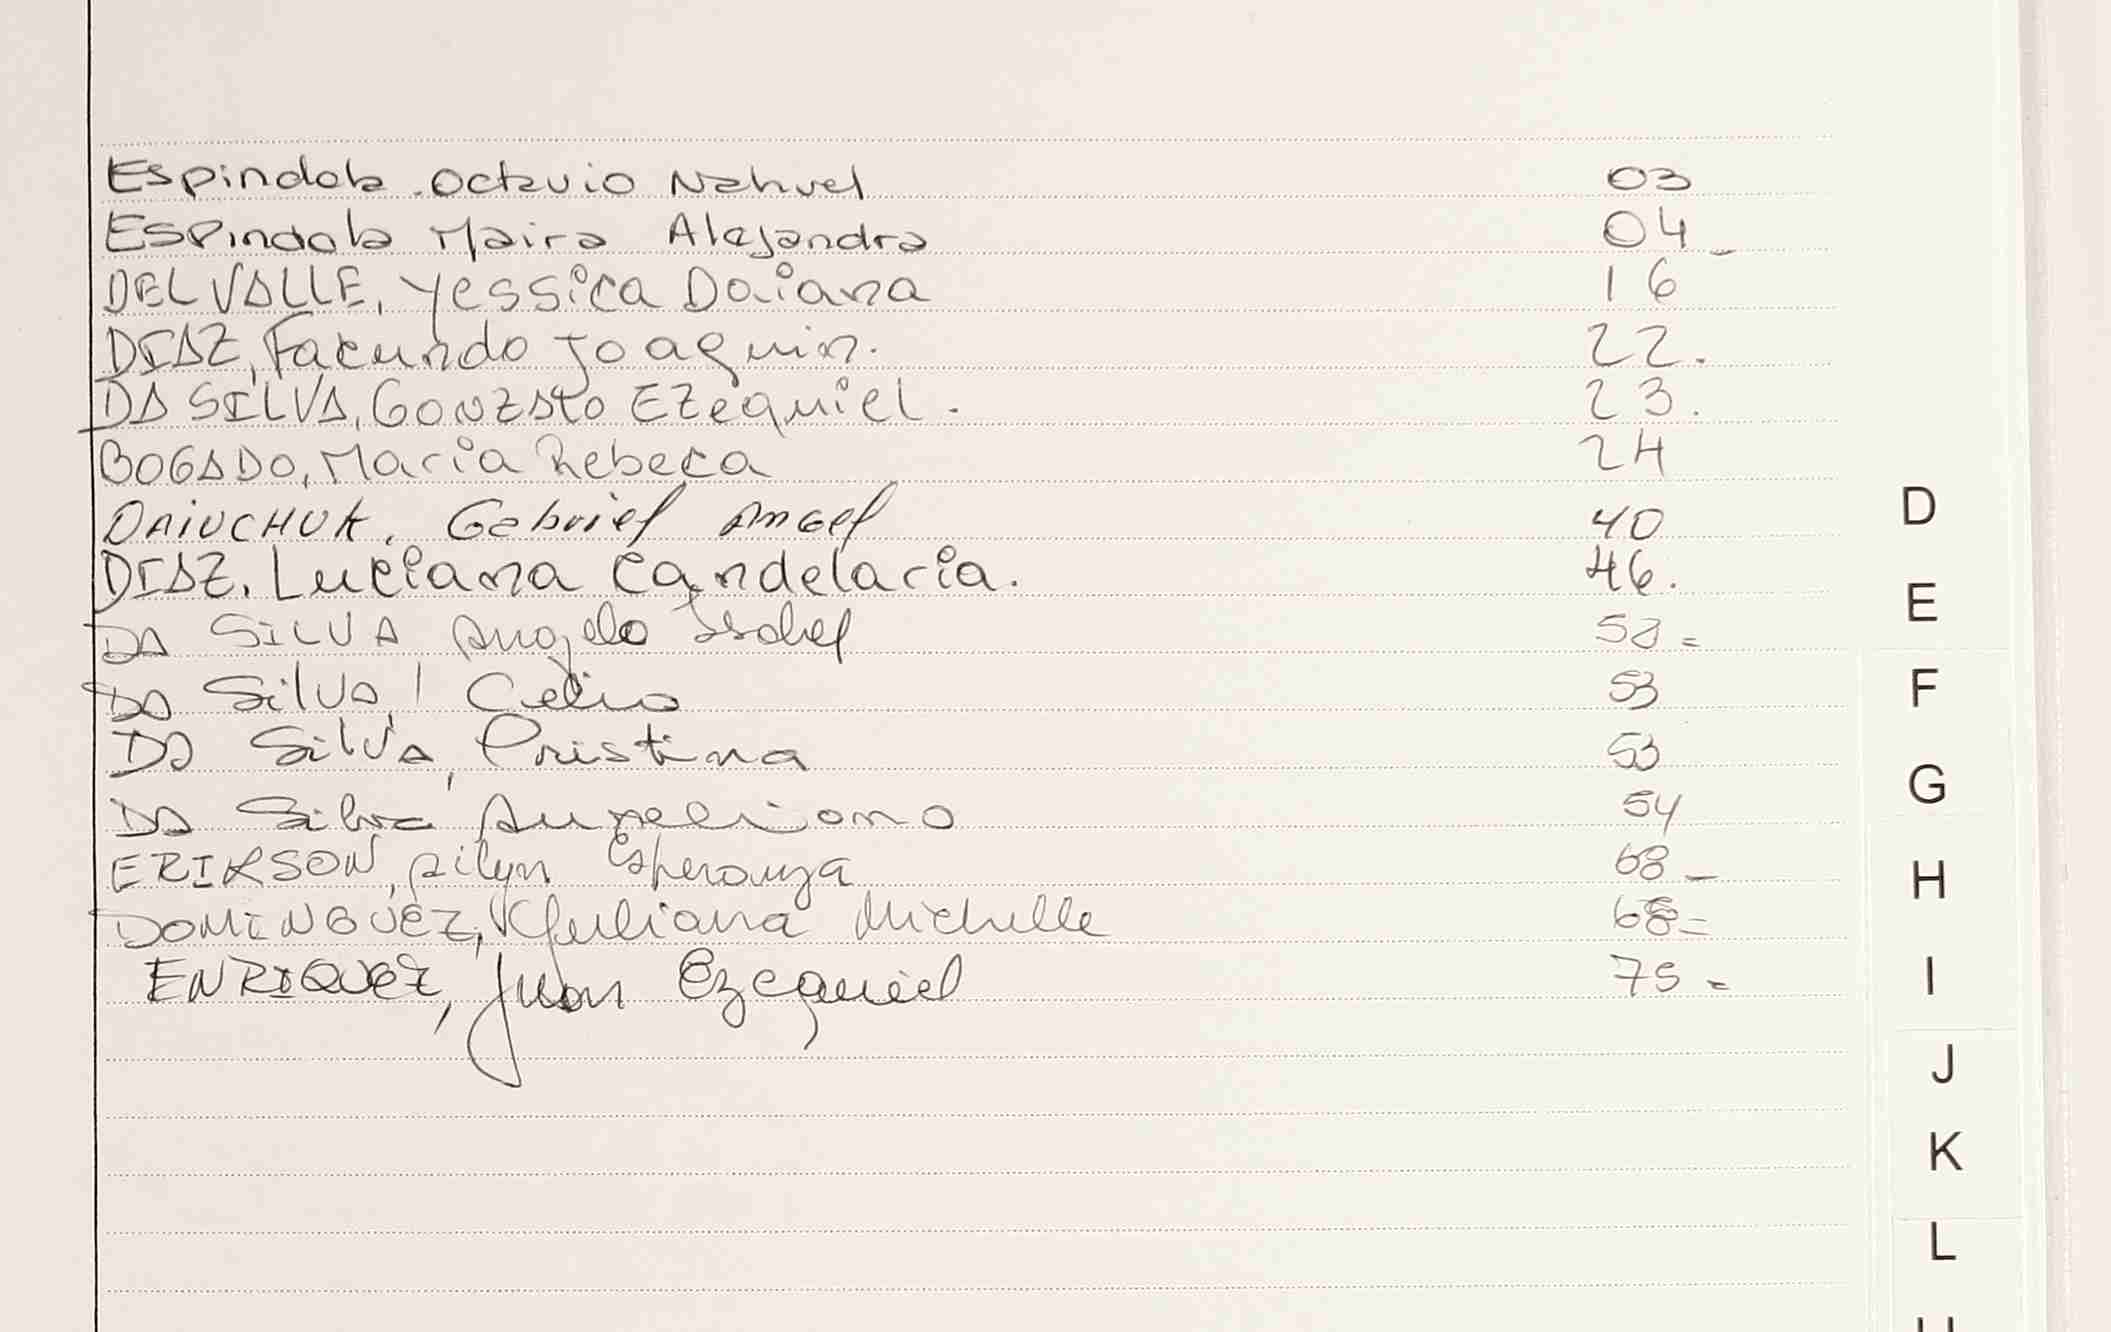 Espindola Octavio Nahuel 03
Espindola Maira Alejandra 04
DEL VALLE, Yessica Daiana 16
DIAZ, Facundo Joaquin. 22.
DA SILVA, Gonzalo EZequiel. 23.
BOGADO, Maria Rebeca 24
DAIUCHUK, Gabriel Angel 40
DIAZ, Luciana Candelaria. 46.
DA SILVA Angela Isabel
Da Silva, Celia 53
Da Silva, Cristina 53
Da Silva Aureliano 54
ERIKSON, Ailyn Esperanza 68
DOMINGUEZ, Juliana Michelle
ENRIQUEZ, Juan Ezequiel 75
D
E
F
G
H
I
J
K
L